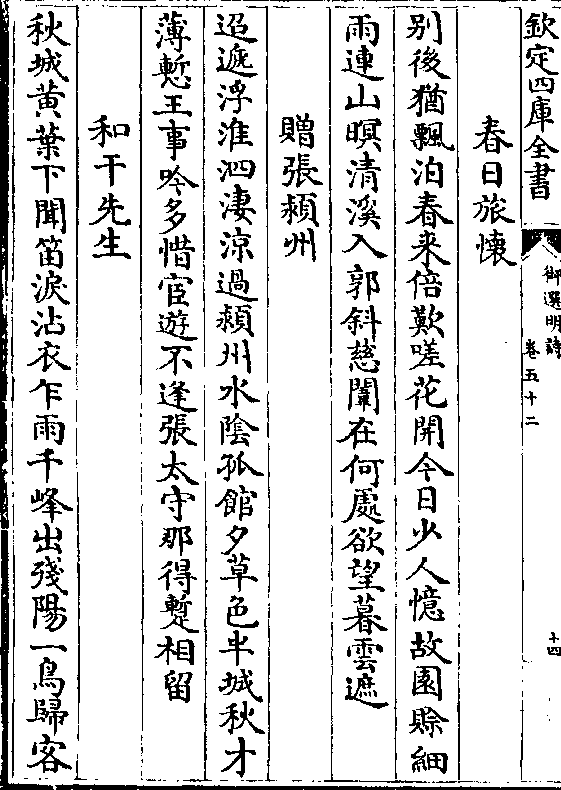 欽定四庫全書
御選明詩
卷五十二
十四
春日旅懷
别後猶飄泊春来倍歎嗟花開今日少人憶故園賖細
雨連山暝清溪入郭斜慈闈在何處欲望暮雲遮
贈張潁州
迢遞浮淮泗淒涼過潁州水陰孤館夕草色半城秋才
薄慙王事吟多惜宦遊不逢張太守那得蹔相留
和干先生
秋城黄葉下聞笛淚沾衣乍雨千峰出殘陽一鳥歸客